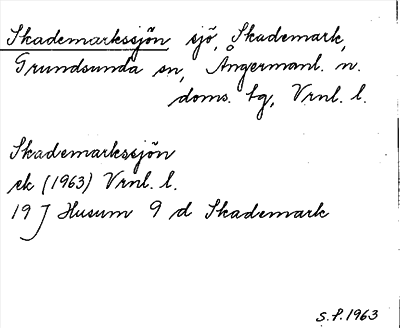 Skademarkssjön sjö, Skademark,
Grundsunda sn, Ångermanl. n.
doms. tg, Vrnl. l.
Skademarkssjön
ek (1963) Vrnl. l.
19 J Husum 9 d Skademark
S.P. 1963